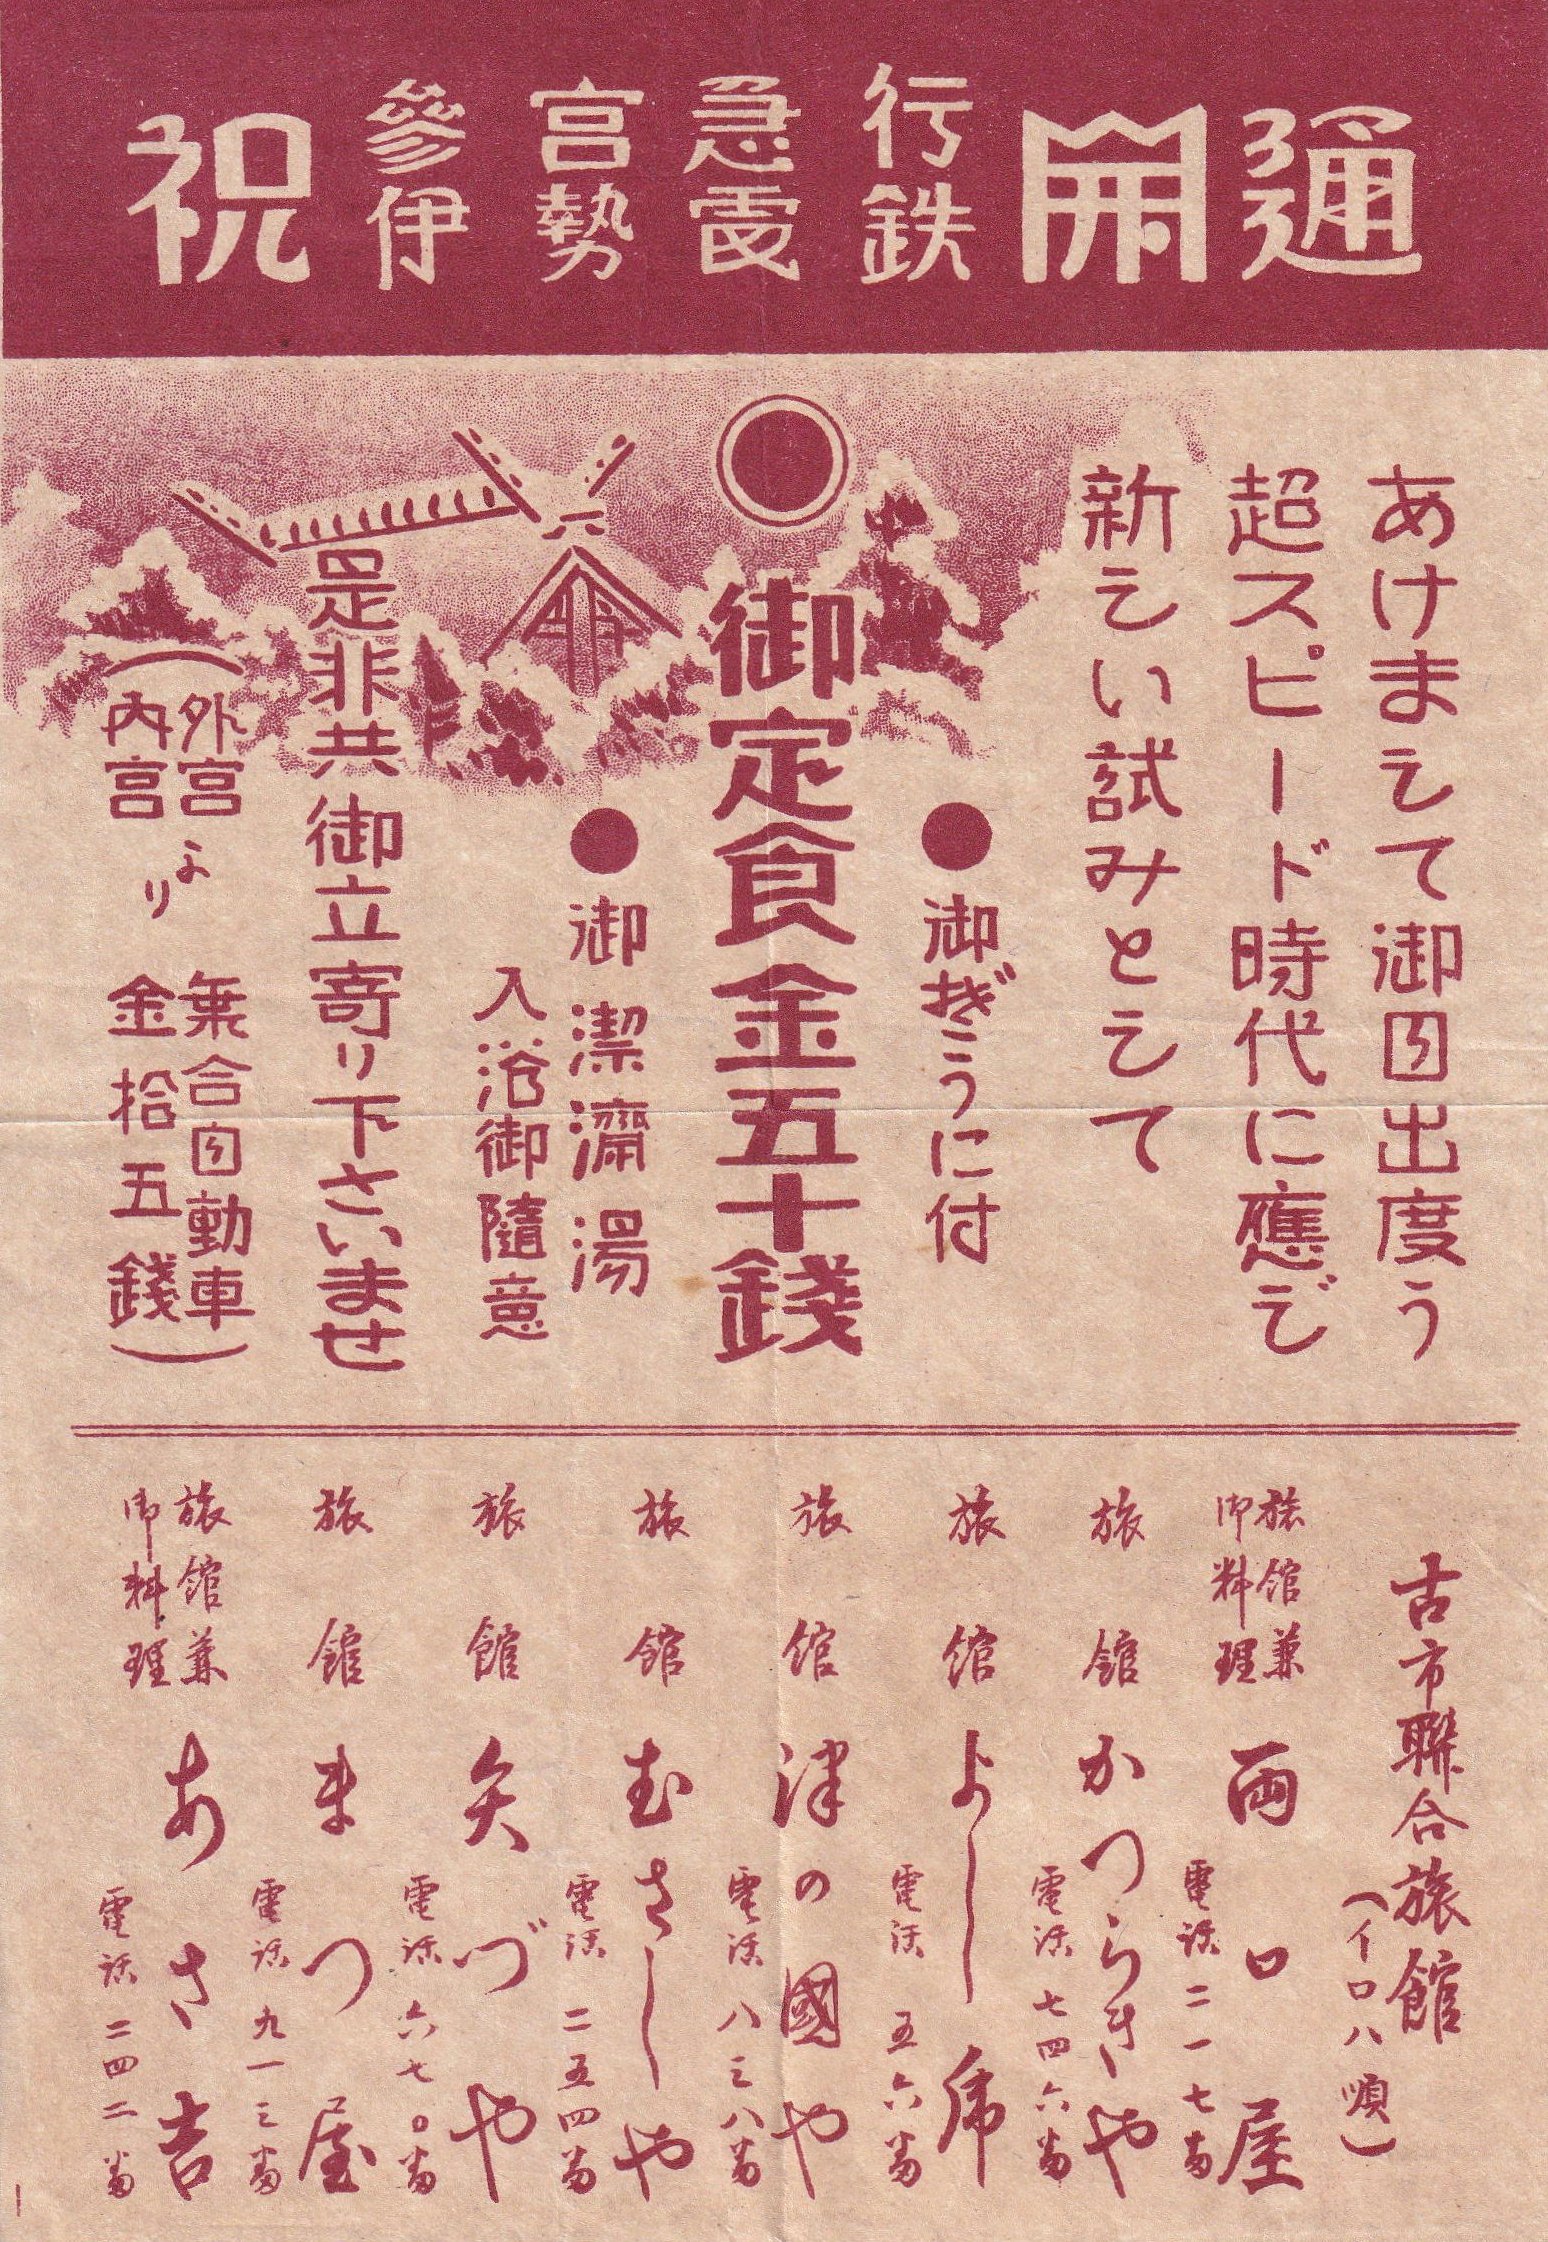 祝 參宮急行 伊勢電鉄 開通
あけまして御目出度う
超スピード時代に應じ
新しい試みとして
●御ぞうに付
御定食金五十錢
●御潔濟湯
入浴御隨意
是非共御立寄リ下さいませ
(外宮より 乗合自動車
内宮より 金拾五錢)
古市聯合旅館
(イロハ順)
旅館兼御料理 両口屋
電話二一七番
旅館 かつらきや
電話七四六番
旅館 よし虎
電話五六番
旅館 津の國や
電話八三八番
旅館 むさしや
電話二五四番
旅館 矢づや
電話六七〇番
旅館 まつ屋
電話九一三番
旅館兼御料理 あさ吉
電話二四二番